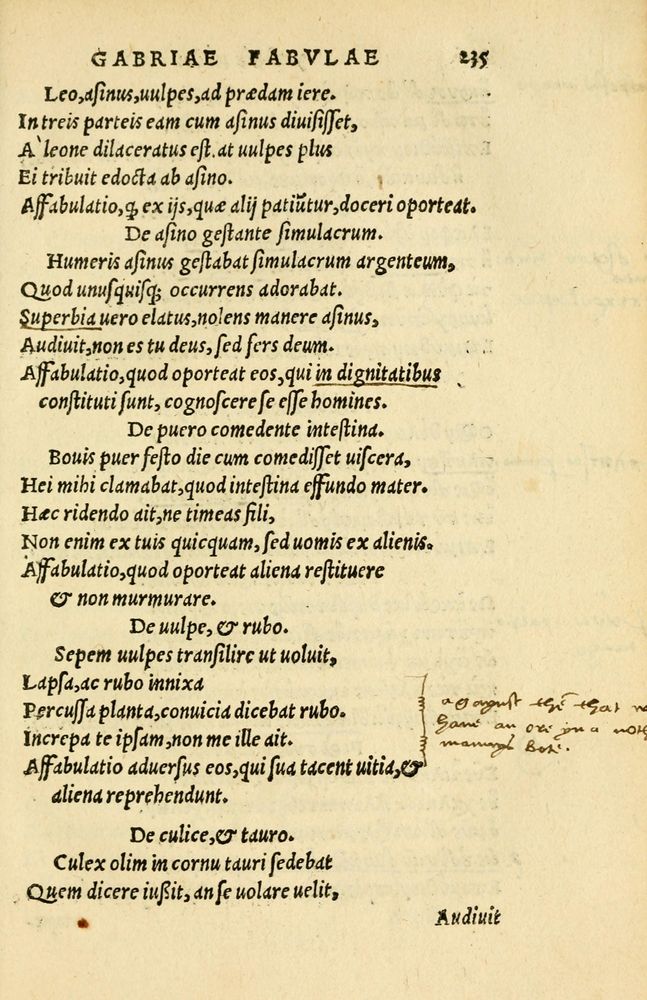 GABRIAE FABVLAE 235
Leo,asinus,uulpes,ad prædam iere.
In treis parteis eam cum asinus diuisisset,
A` leone dilaceratus est. at uulpes plus
Ei tribuit edocta ab asino.
Affabulatio,q; ex ijs,quæ alij patiūtur,doceri oporteat.
De asino gestante simulacrum.
Humeris asinus gestabat simulacrum argenteum,
Quod unusquisq; occurrens adorabat.
Superbia uero elatus,nolens manere asinus,
Audiuit,non es tu deus, sed fers deum.
Affabulatio,quod oporteat eos,qui in dignitatibus
constituti sunt, cognoscere se esse homines.
De puero comedente intestina.
Bouis puer festo die cum comedisset uiscera,
Hei mihi clamabat,quod intestina effundo mater.
Hæc ridendo ait,ne timeas fili,
Non enim ex tuis quicquam, sed uomis ex alienis.
Affabulatio,quod oporteat aliena restituere
& non murmurare.
De uulpe, & rubo.
Sepem uulpes transilire ut uoluit,
Lapsa,ac rubo innixa
Percussa planta,conuicia dicebat rubo.
Increpa te ipsam,non me ille ait.
Affabulatio aduersus eos,qui sua tacent uitia,&
aliena reprehendunt.
agaynst thē that
haue an ore yn a noth
mannys bote.
De culice,& tauro.
Culex olim in cornu tauri sedebat
Quem dicere iußit, an se uolare uelit,
Audiuit